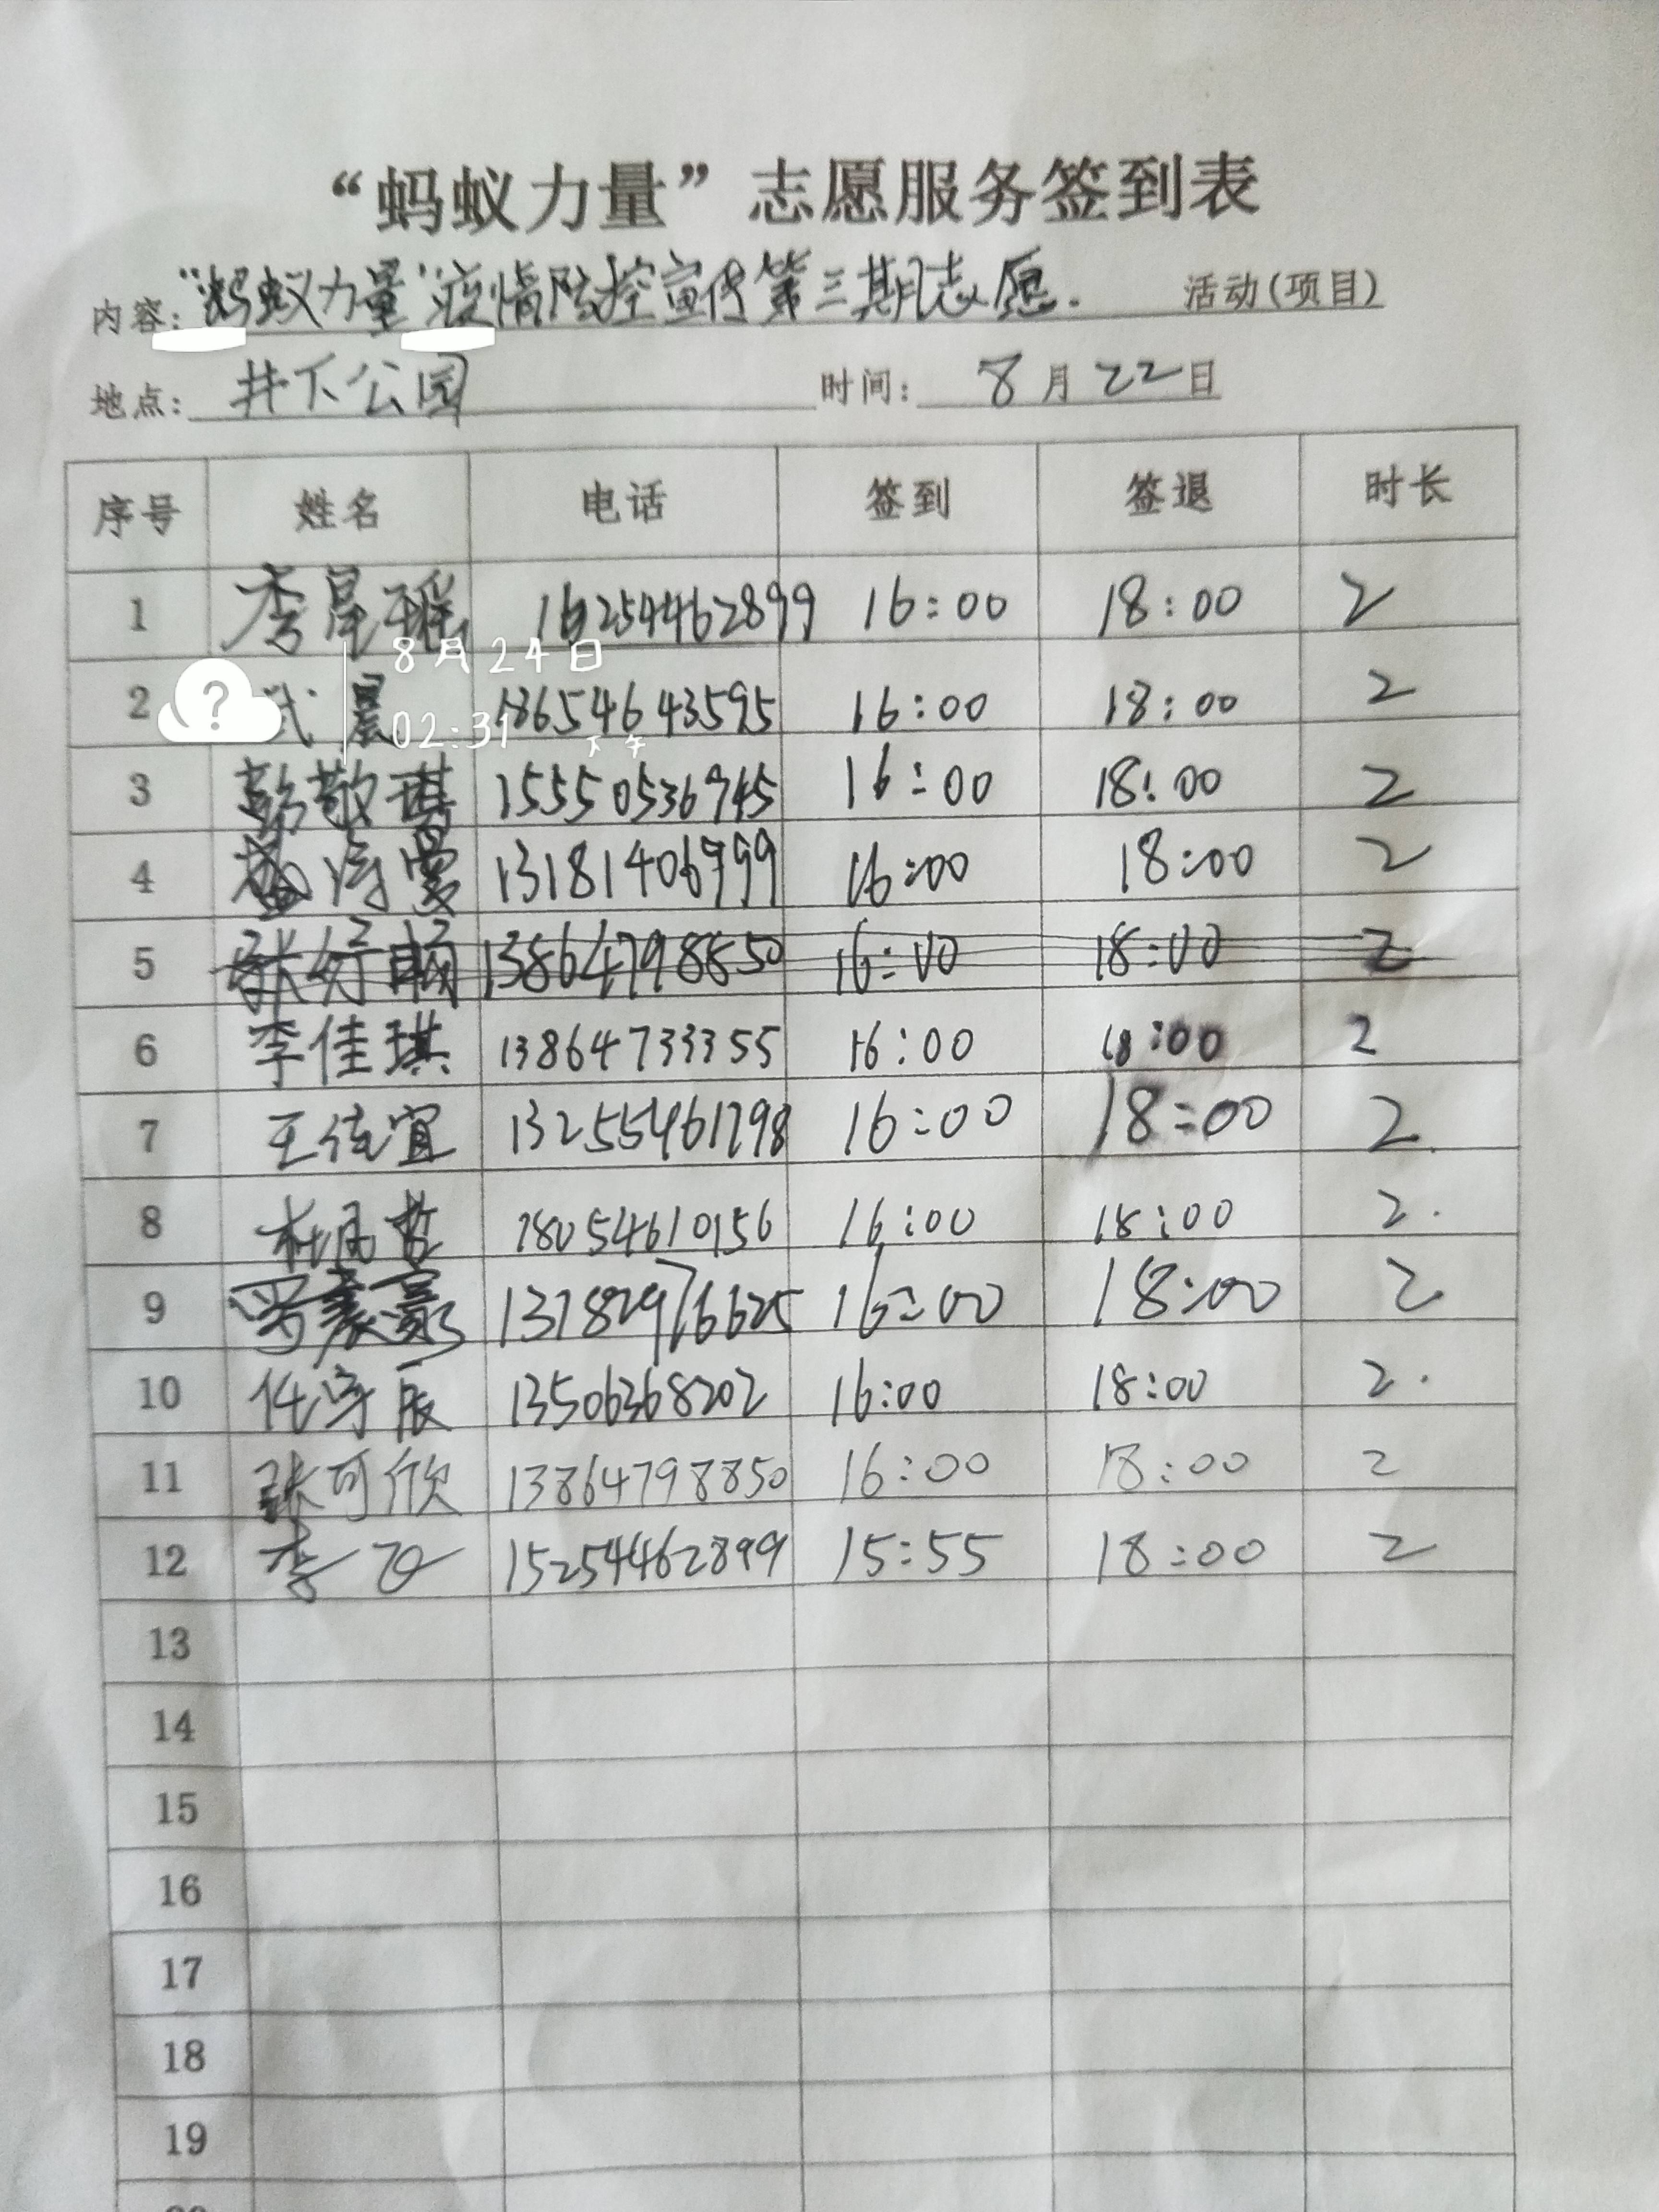 “蚂蚁力量”志愿服务签到表
内容：“蚂蚁力量”疫情防控宣传第三期志愿. 活动(项目)
地点：井下公园 时间：8月22日
序号 姓名 电话 签到 签退 时长
1 李晨瑶 15254462899 16:00 18:00 2
2 武晨 18654643595 16:00 18:00 2
8月24日
02:31
下午
3 彭敬琪 15550536745 16:00 18:00 2
4 13181406999 16:00 18:00 2
5 13864798850 16:00 18:00 2
6 李佳琪 13864733355 16:00 18:00 2
7 王佳宜 13255461798 16:00 18:00 2.
8 18054610156 16:00 18:00 2.
9 13182976625 16:00 18:00 2
10 任宇辰 13506368202 16:00 18:00 2.
11 张可欣 13864798850 16:00 18:00 2
12 李飞 15254462899 15:55 18:00 2
13
14
15
16
17
18
19